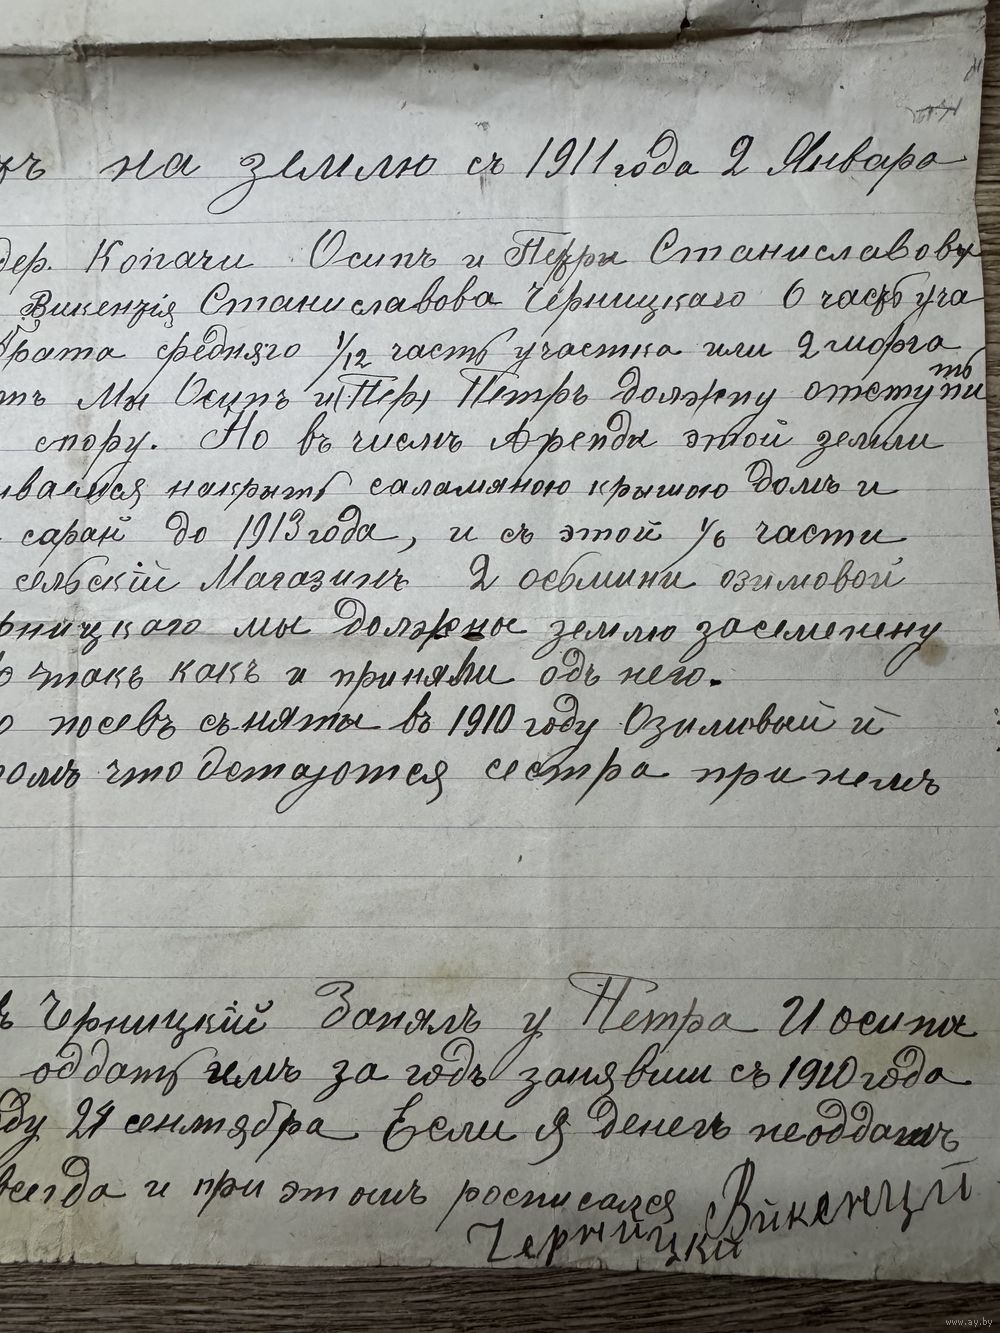 на землю съ 1911 года 2 Января
дер. Копачи Осипъ и Петры Станиславовы
Викензія Станиславова Черницкаго 6 часть уча
брата средняго 1/12 часть участка или 2 морга
Мы Осипъ и (Пер) Петръ должну отступить
спору. Но въ числъ Аренды этой земли
накрыть саламяною крышою домъ и
сарай до 1913 года, и съ этой 1/6 части
сельскій Магазинъ 2 осьмини озимовой
рницкаго мы должны землю засеменену
такъ какъ и приняли одъ него.
посевъ съняты въ 1910 году Озимовый й
что Остаются сестра при немъ
Черницкій Занялъ у Петра И осипа
оддать имъ за годъ занявши съ 1910 года
24 сентября Если я денегъ неоддамъ
всегда и при этомъ росписался Викенцій
Черницки
www.ay.by